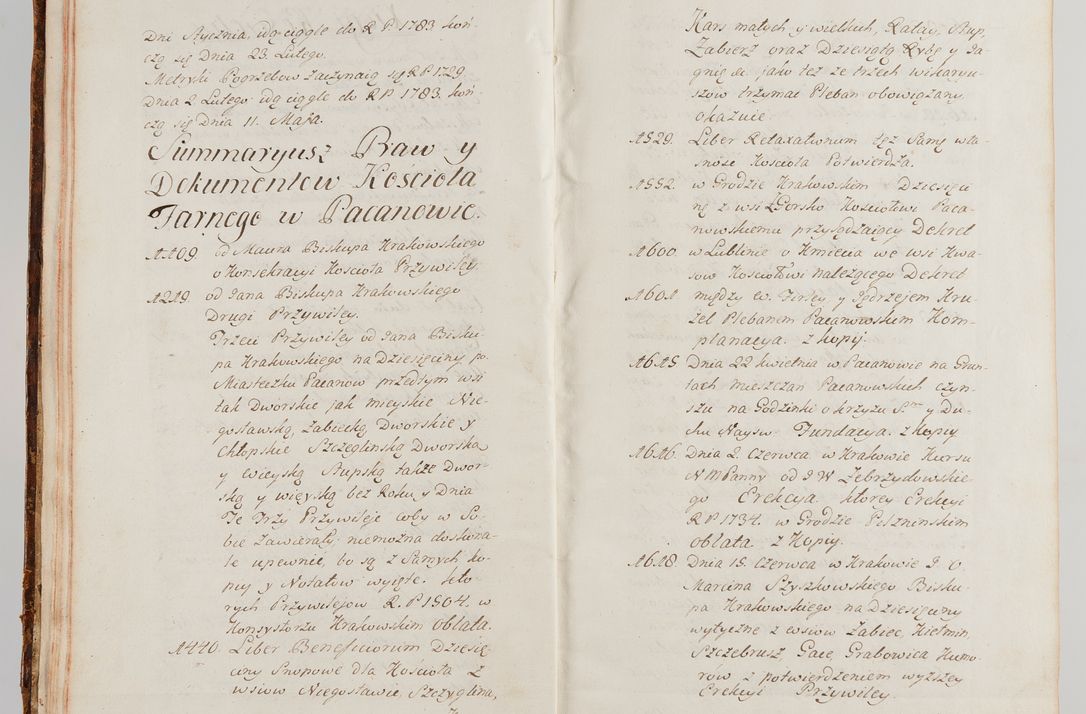 Dni Stycznia, idą ciągle do R. P. 1783. koń-
czą się Dnia 23. Lutego.
Metryki Pogrzebow zaczynaią się R P 1729.
Dnia 2 Lutego idą ciągle do R P. 1783. koń-
czą się Dnia 11. Maja.
Summaryusz Praw y
Dokumentow Kosciola
Farnego w Pacanowie.
1109. od Maura Biskupa Krakowskiego
o Konsekracyi Kosciola Przywiley.
1219. od Jana Biskupa Krakowskiego
Drugi Przywiley.
Trzeci Przywiley od Jana Bisku-
pa Krakowskiego na Dziesięciny po
Miasteczku Pacanow przedtym wsi
tak Dworskie jak mieyskie Nie-
gosławską, Zabiecką, Dworskie y
Chłopskie Szczeglinską Dworską
y wieyską Słupską także Dwor-
ską y wieyską bez Roku y Dnia
Te Trzy Przywileje coby w So-
bie zawierały niemożna doskona-
le upewnić, bo są z Samych ko-
piy y Notatow wyięte. kto-
rych Przywilejow R. P 1504. w
Konsystorzu Krakowskim oblata.
1440. Liber Beneficiorum Dziesię-
ciny Snopowe dla Kościoła z
wsiow Niegosławie, Szczyglina,
Kars małych y wielkich, Rataie, Słup,
Zabierz oraz Dziesiątą Rybę y Ja-
gnię &c. jako też ze trzech wikaryu-
szow trzymać Pleban obowiązany
okazuie.
1529. Liber Retaxationum też Samę wła-
sność Kościoła Potwierdza.
1552. w Grodzie Krakowskim Dziesięci-
nę z wsi Gorsko Kościołowi Paca-
nowskiemu przysądzaiący Dekret
1600. w Lublinie o Kmiecia we wsi Kwa-
sow Kościołowi należącego Dekret
1601. między Ew. Firley y Jędrzejem Kru-
zel Plebanem Pacanowskim Kom-
planacya. z kopij.
1615 Dnia 22 kwietnia w Pacanowie na Grun-
tach mieszczan Pacanowskich czyn-
szu na Godzinki o krzyżu S. y Du-
chu Nayśw. Fundacya. z kopiy
1616. Dnia 2. Czerwca w Krakowie Kursu
N M Panny od J W Zebrzydowskie-
go Erekcya ktorey Erekcyi
R P 1734. w Grodzie Pilznińskim
oblata z Kopiy.
1618. Dnia 15 Czerwca w Krakowie J. O.
Marcina Szyszkowskiego Bisku-
pa Krakowskiego na Dziesięciny
wytyczne z wsiow Zabiec, Kiełmin,
Szczebrusz, Gace, Grabowica Kumo-
row z potwierdzeniem wyższey
Erekcyi Przywiley.